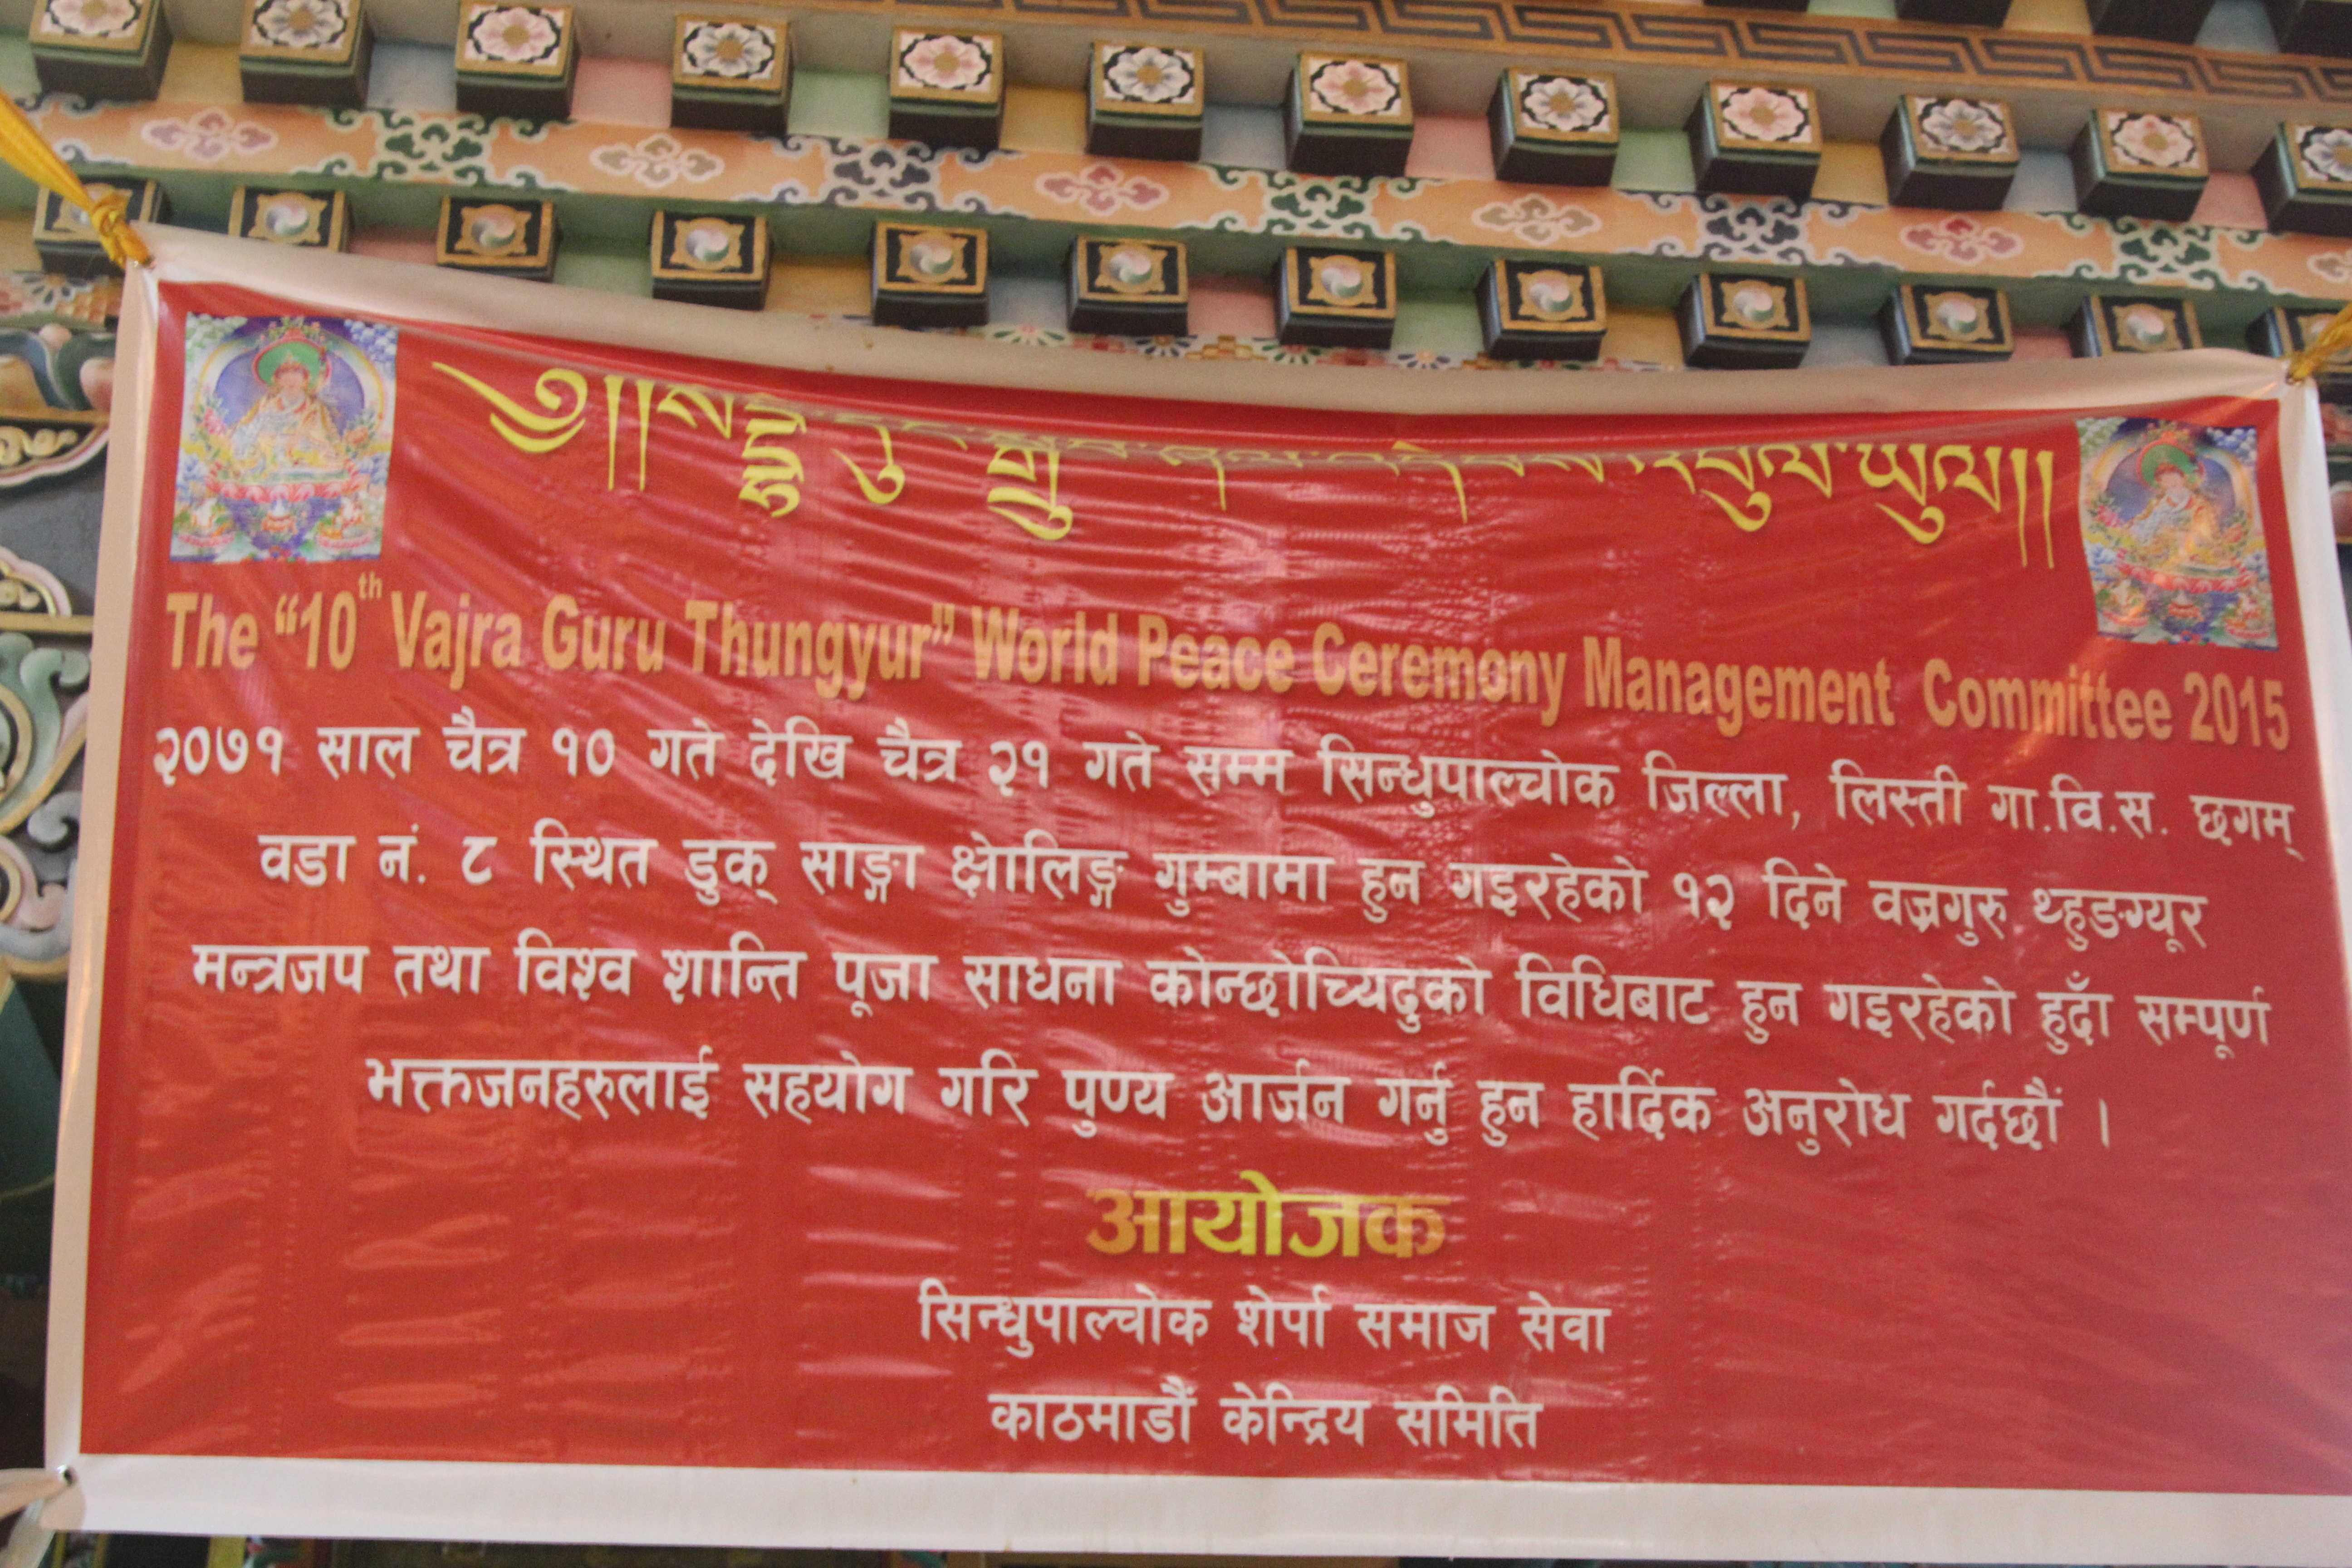 The “10th Vajra Guru Thungyur” World Peace Ceremony Management Committee 2015
२०७१ साल चैत्र १० गते देखि चैत्र २१ गते सम्म सिन्धुपाल्चोक जिल्ला, लिस्ती गा.वि.स. छगम्
वडा नं. ८ स्थित डुक् साङ्गा क्षेालिङ्ग गुम्बामा हुन गइरहेको १२ दिने वज्रगुरु थ्हुङग्यूर
मन्त्रजप तथा विश्व शान्ति पूजा साधना कोन्छोच्यिदुको विधिबाट हुन गइरहेको हुदाँ सम्पूर्ण
भक्तजनहरुलाई सहयोग गरि पुण्य आर्जन गर्नु हुन हार्दिक अनुरोध गर्दछौं ।
आयोजक
सिन्धुपाल्चोक शेर्पा समाज सेवा
काठमाडौं केन्द्रिय समिति